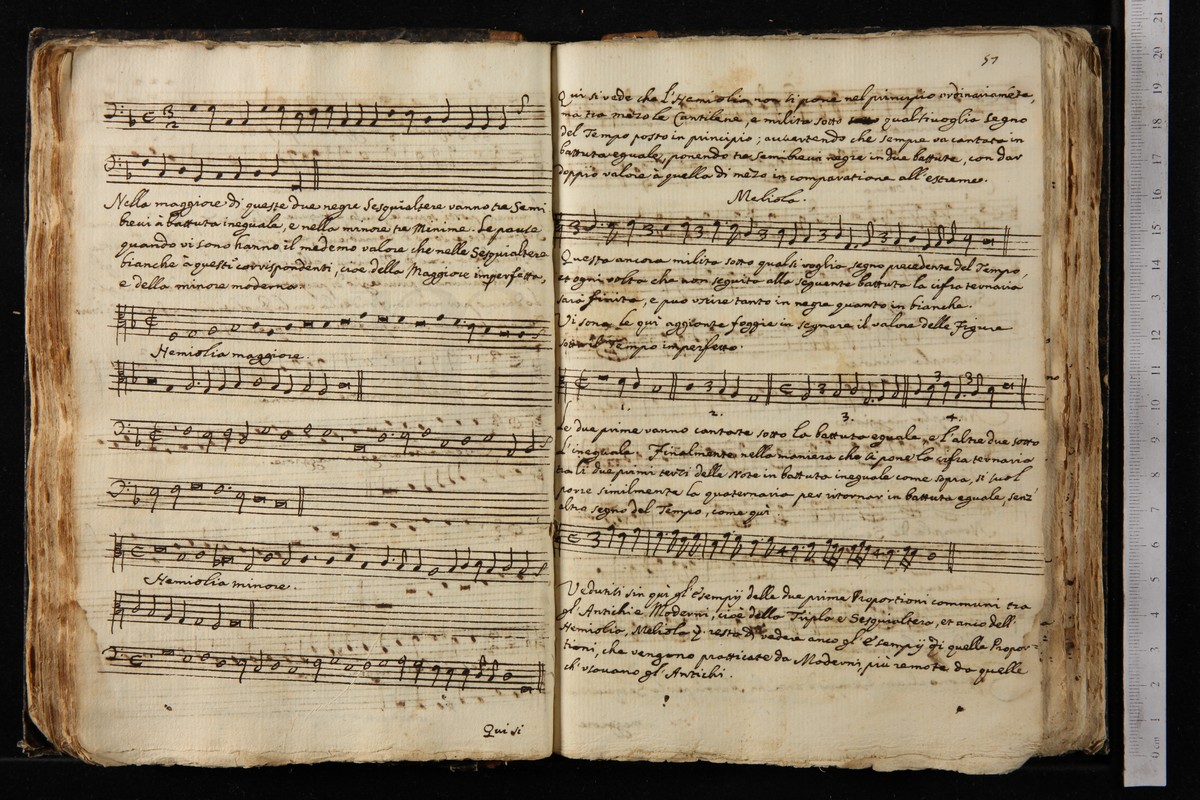 Nella maggiore di queste due negre Sesquialtere vanno tre Semi
brevi à battuta ineguale, e nella minore tre Minime. Le pause
quando vi sono hanno il medemo valore che nelle Sesquialtere
bianche à questi corrispondenti, cioè della Maggiore imperfetta,
e della minore moderna.
Hemiolia maggiore.
Hemiolia minore.
Qui si
57
Qui si vede che l'Hemiolia non si pone nel principio ordinariamēte,
ma tra mezo le Cantilene, e milita sotto qualsivoglia segno
del Tempo posto in principio; avvertendo che sempre va cantata in
battuta eguale, ponendo tre semibrevi negre in due battute, con dar
doppio valore à quella di mezo in comparatione all'estreme.
Meliola.
3 3 3 3 3 3
Questa ancora milita sotto qualsi voglia segno precedente del Tempo,
et ogni volta che non seguita alla seguente battuta la cifra ternaria
sarà finita, e può usirse tanto in negre quanto in bianche.
Vi sono le quì aggionte foggie in segnare il valore delle Figure
sotto il Tempo imperfetto.
3 3 3 3
1. 2. 3. 4.
Le due prime vanno cantate sotto la battuta eguale, e l'altre due sotto
l'ineguale. Finalmente nella maniera che si pone la cifra ternaria
tra li due primi terzi delle Note in battuta ineguale come sopra, si suol
porre similmente la quaternaria per ritornar in battuta eguale, senz'
altro segno del Tempo, come quì
3 4 4
Veduti sin quì gl'essempij delle due prime Proportioni communi tra
gl'Antichi e Moderni, cioè della Tripla e Sesquialtera, et anco dell'
Hemiolia, Meliola resta vedere anco gl'essempij di quelle Propor=
tioni, che vengono pratticate da Moderni, più remote da quelle
ch'usavano gl'Antichi.